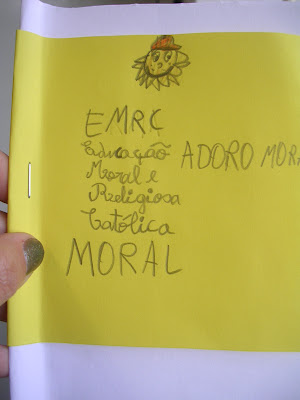 EMRC
Educação
Moral e
Religiosa
Católica
MORAL
ADORO MORA